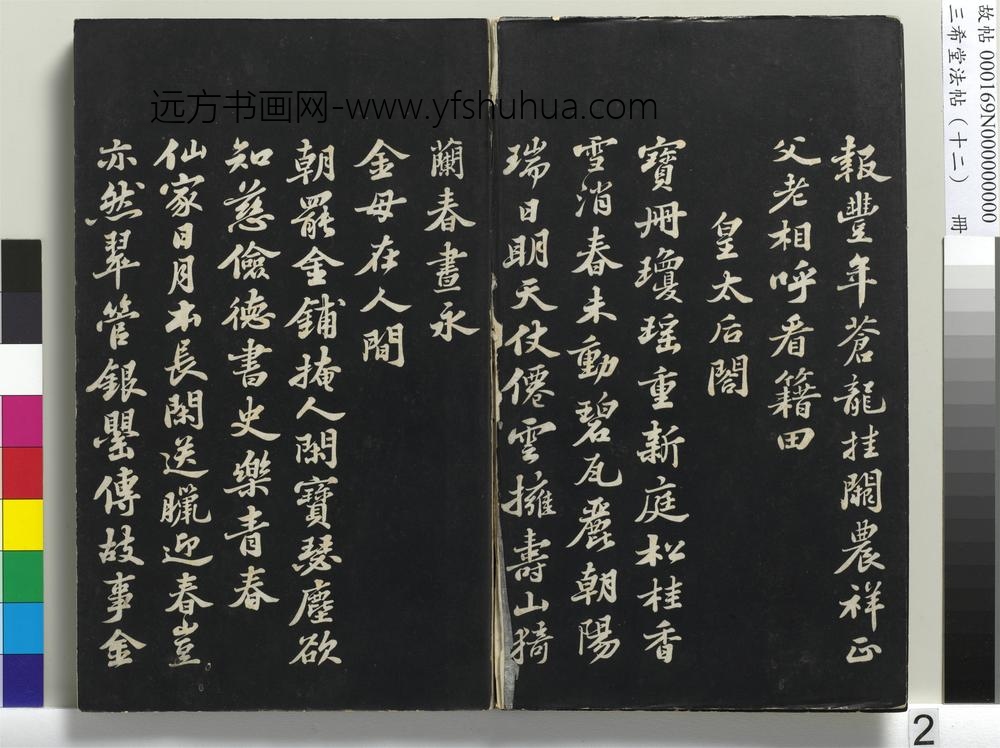 報豐年蒼龍挂闕農祥正
父老相呼看籍田
皇太后閤
寶冊瓊瑤重新庭松桂香
雪消春未動碧瓦麗朝陽
瑞日明天仗僊雲擁壽山猗
蘭春晝永
金母在人間
朝罷金鋪掩人閑寶瑟塵欲
知慈儉德書史樂青春
仙家日月本長閑送臘迎春豈
亦然翠管銀罌傳故事金
远方书画网-www.yfshuhua.com
故帖 000169N000000000
三希堂法帖（十二） 冊
2